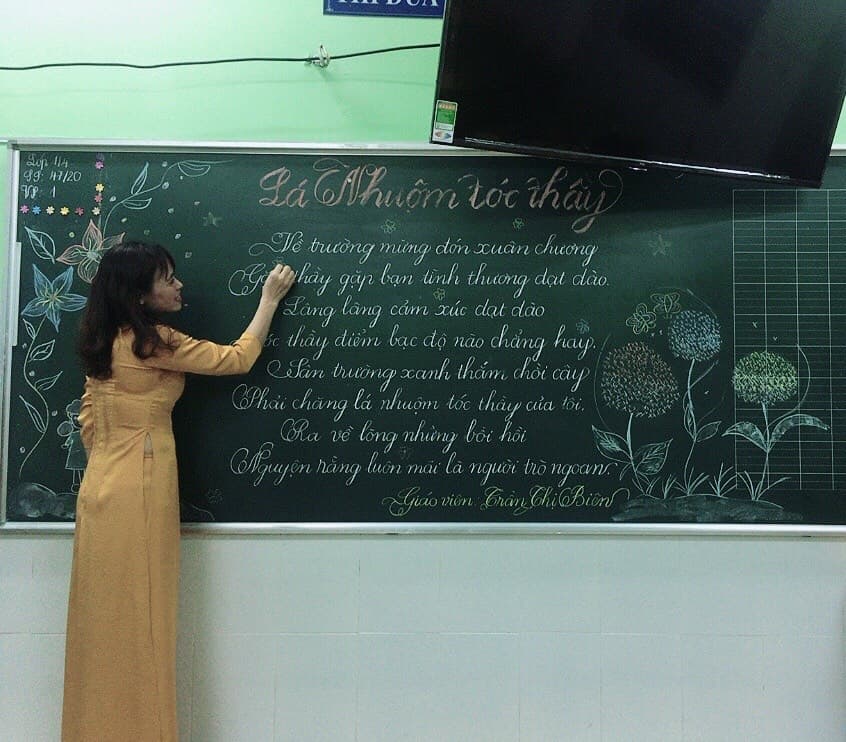 THI ĐUA
Lớp 1/4
SS: 47/20
VS: 1
Lá Nhuộm tóc thầy
Về trường mừng đón xuân chương
thầy gặp bạn tình thương dạt dào.
Lâng lâng cảm xúc dạt dào
thầy điểm bạc độ nào chẳng hay.
Sân trường xanh thắm chồi cây
Phải chăng lá nhuộm tóc thầy của tôi.
Ra về lòng những bồi hồi
Nguyện rằng luôn mãi là người trò ngoan.
Giáo viên: Trần Thị Biên